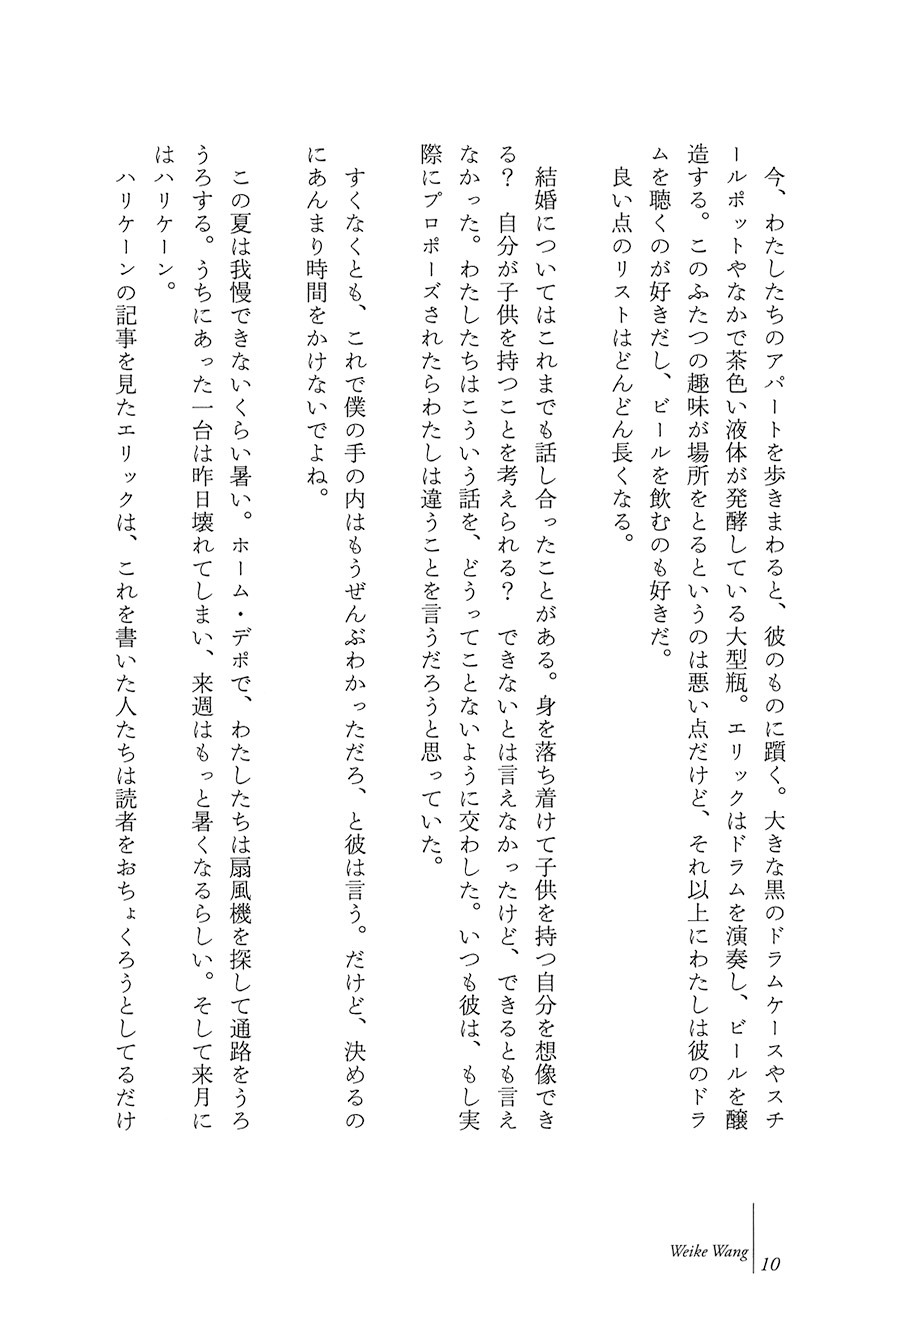 今、わたしたちのアパートを歩きまわると、彼のものに躓く。大きな黒のドラムケースやスチ
ールポットやなかで茶色い液体が発酵している大型瓶。エリックはドラムを演奏し、ビールを醸
造する。このふたつの趣味が場所をとるというのは悪い点だけど、それ以上にわたしは彼のドラ
ムを聴くのが好きだし、ビールを飲むのも好きだ。
良い点のリストはどんどん長くなる。
結婚についてはこれまでも話し合ったことがある。身を落ち着けて子供を持つ自分を想像でき
る？　自分が子供を持つことを考えられる？　できないとは言えなかったけど、できるとも言え
なかった。わたしたちはこういう話を、どうってことないように交わした。いつも彼は、もし実
際にプロポーズされたらわたしは違うことを言うだろうと思っていた。
すくなくとも、これで僕の手の内はもうぜんぶわかっただろ、と彼は言う。だけど、決めるの
にあんまり時間をかけないでよね。
この夏は我慢できないくらい暑い。ホーム・デポで、わたしたちは扇風機を探して通路をうろ
うろする。うちにあった一台は昨日壊れてしまい、来週はもっと暑くなるらしい。そして来月に
はハリケーン。
ハリケーンの記事を見たエリックは、これを書いた人たちは読者をおちょくろうとしてるだけ
Weike Wang
10